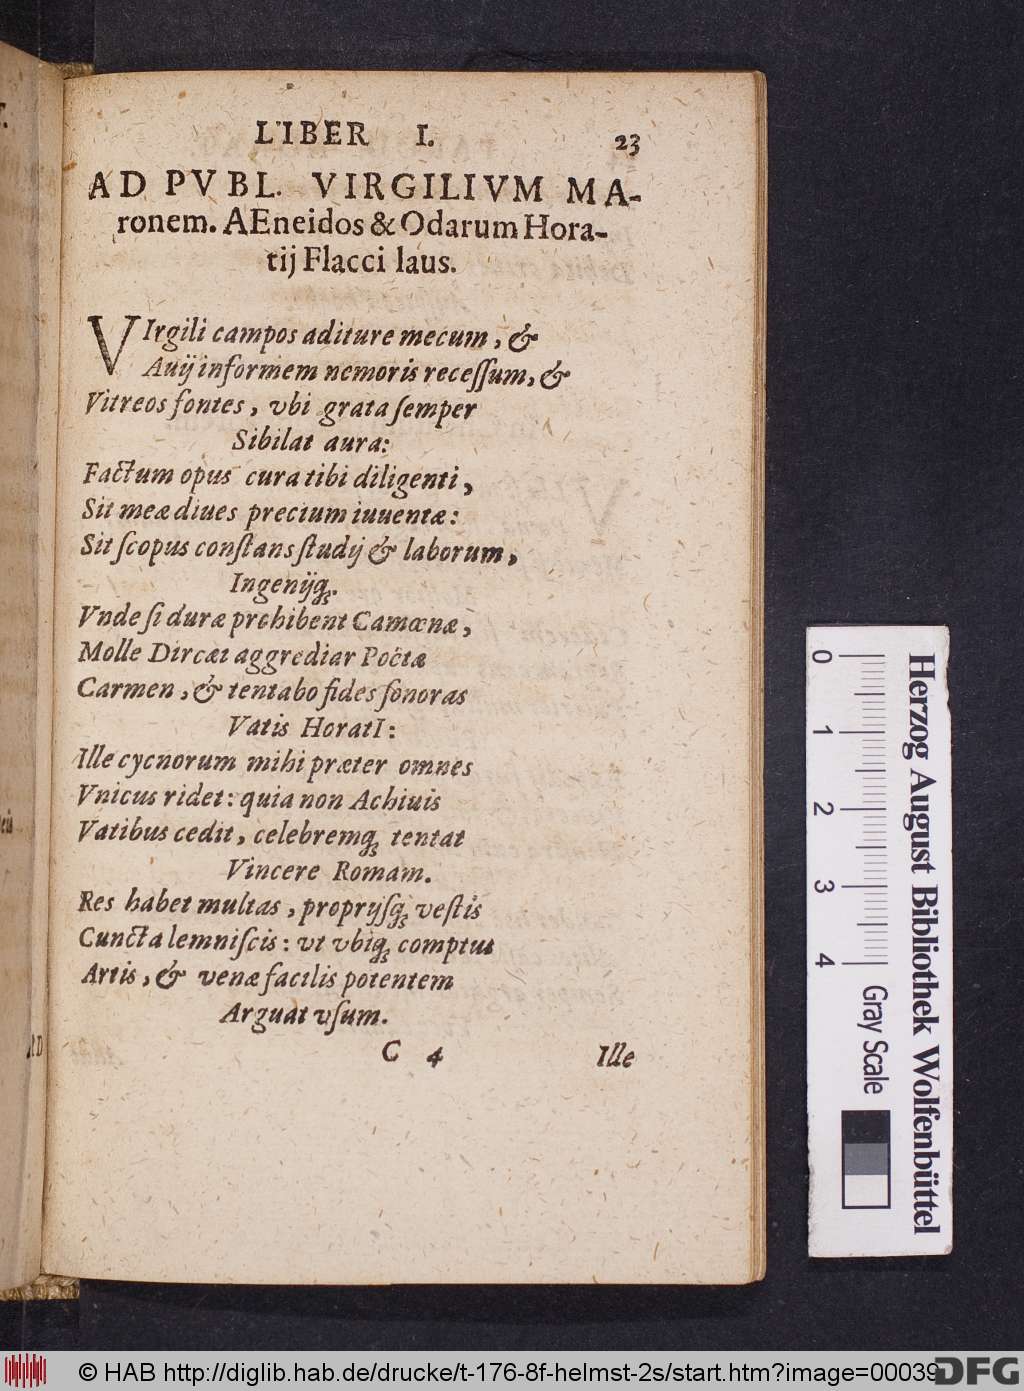 LIBER I. 23
AD PVBL. VIRGILIVM MA-
ronem. AEneidos & Odarum Hora-
tij Flacci laus.
VIrgili campos aditure mecum, &
Auij informem nemoris recessum, &
Vitreos fontes, vbi grata semper
Sibilat aura:
Factum opus cura tibi diligenti,
Sit meæ diues precium iuuentæ:
Sit scopus constans studij & laborum,
Ingenijq́;.
Vnde si duræ prohibent Camœnæ,
Molle Dircæi aggrediar Poëtæ
Carmen, & tentabo fides sonoras
Vatis HoratI:
Ille cycnorum mihi præter omnes
Vnicus ridet: quia non Achiuis
Vatibus cedit, celebremq́; tentat
Vincere Romam.
Res habet multas, proprijsq́; vestis
Cuncta lemniscis: vt vbiq́; comptus
Artis, & venæ facilis potentem
Arguat vsum.
C 4 Ille
0 1 2 3 4
Gray Scale
Herzog August Bibliothek Wolfenbüttel
© HAB http://diglib.hab.de/drucke/t-176-8f-helmst-2s/start.htm?image=00039
DFG